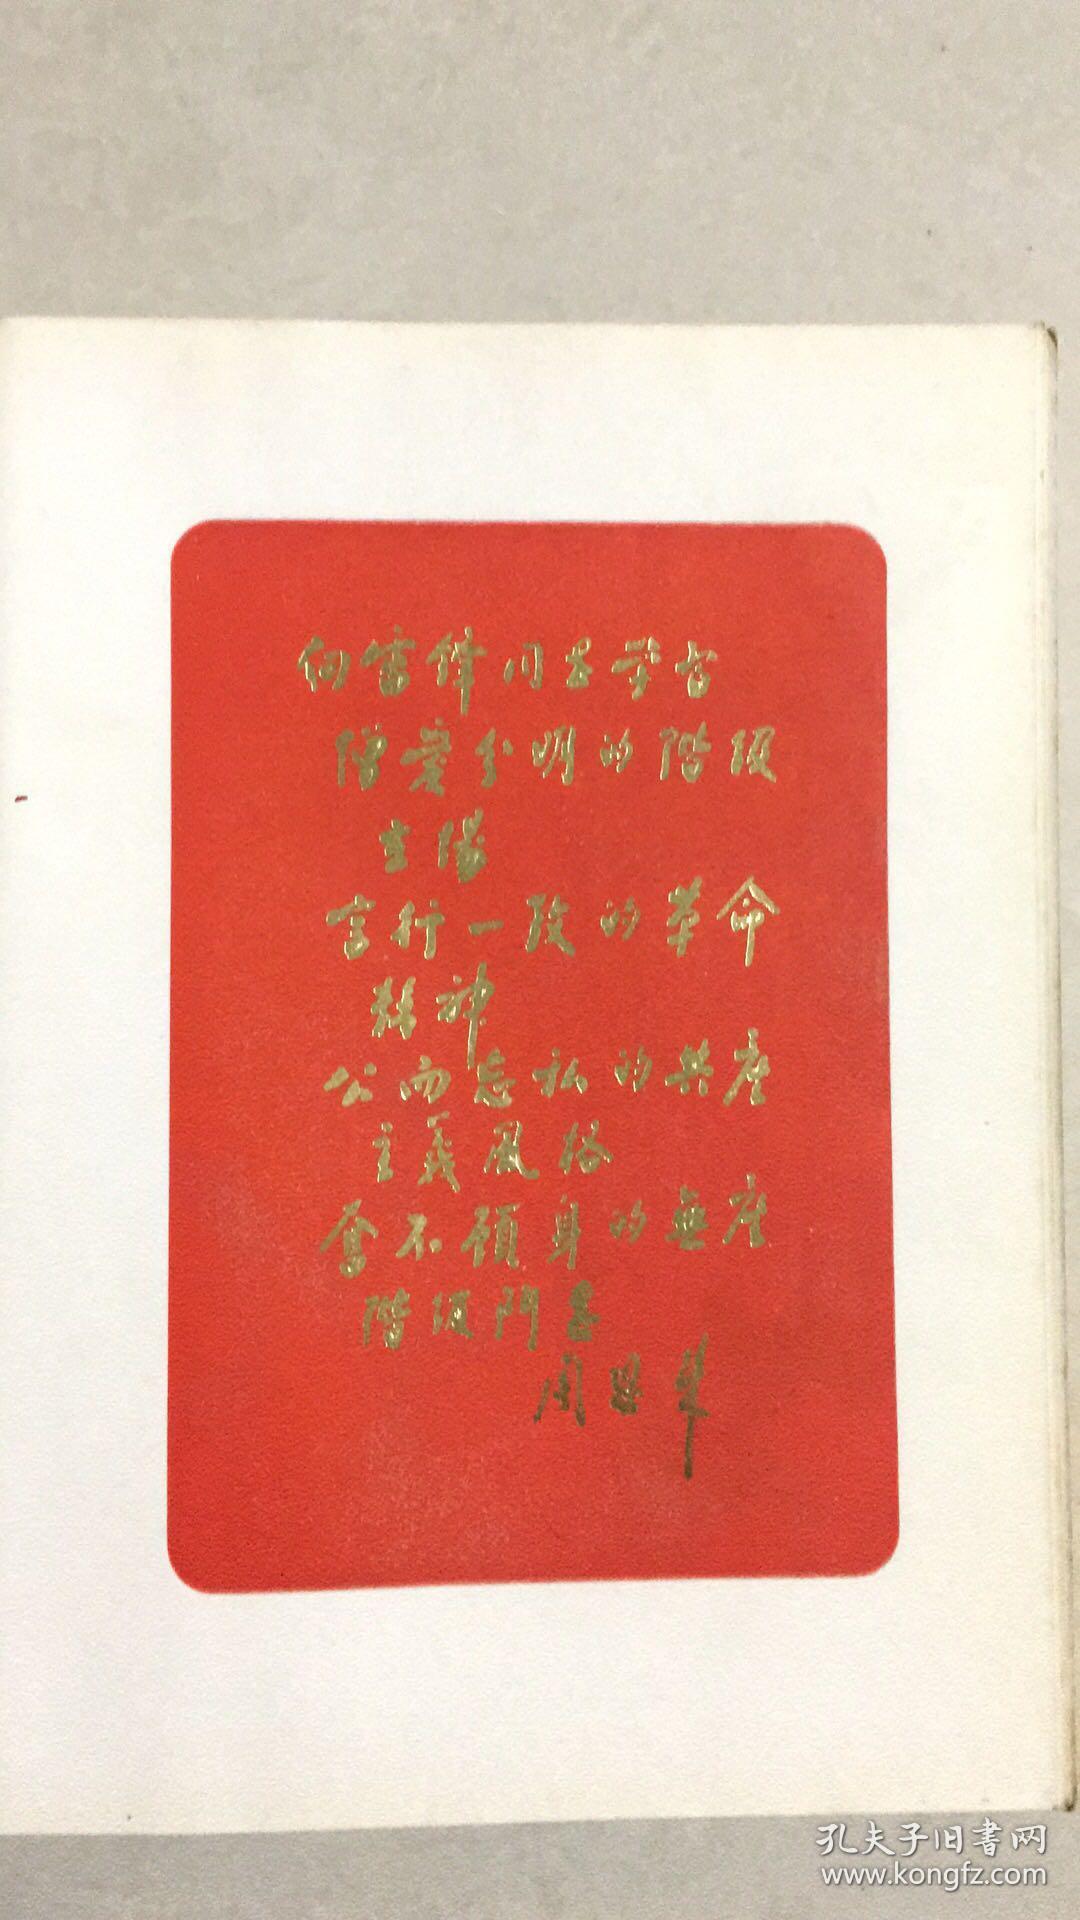 向雷锋同志学習
憎爱分明的階级
立場
言行一致的革命
精神
公而忘私的共產
主義風格
奮不顧身的無產
階级鬥志
周恩来
孔夫子旧書网
www.kongfz.com